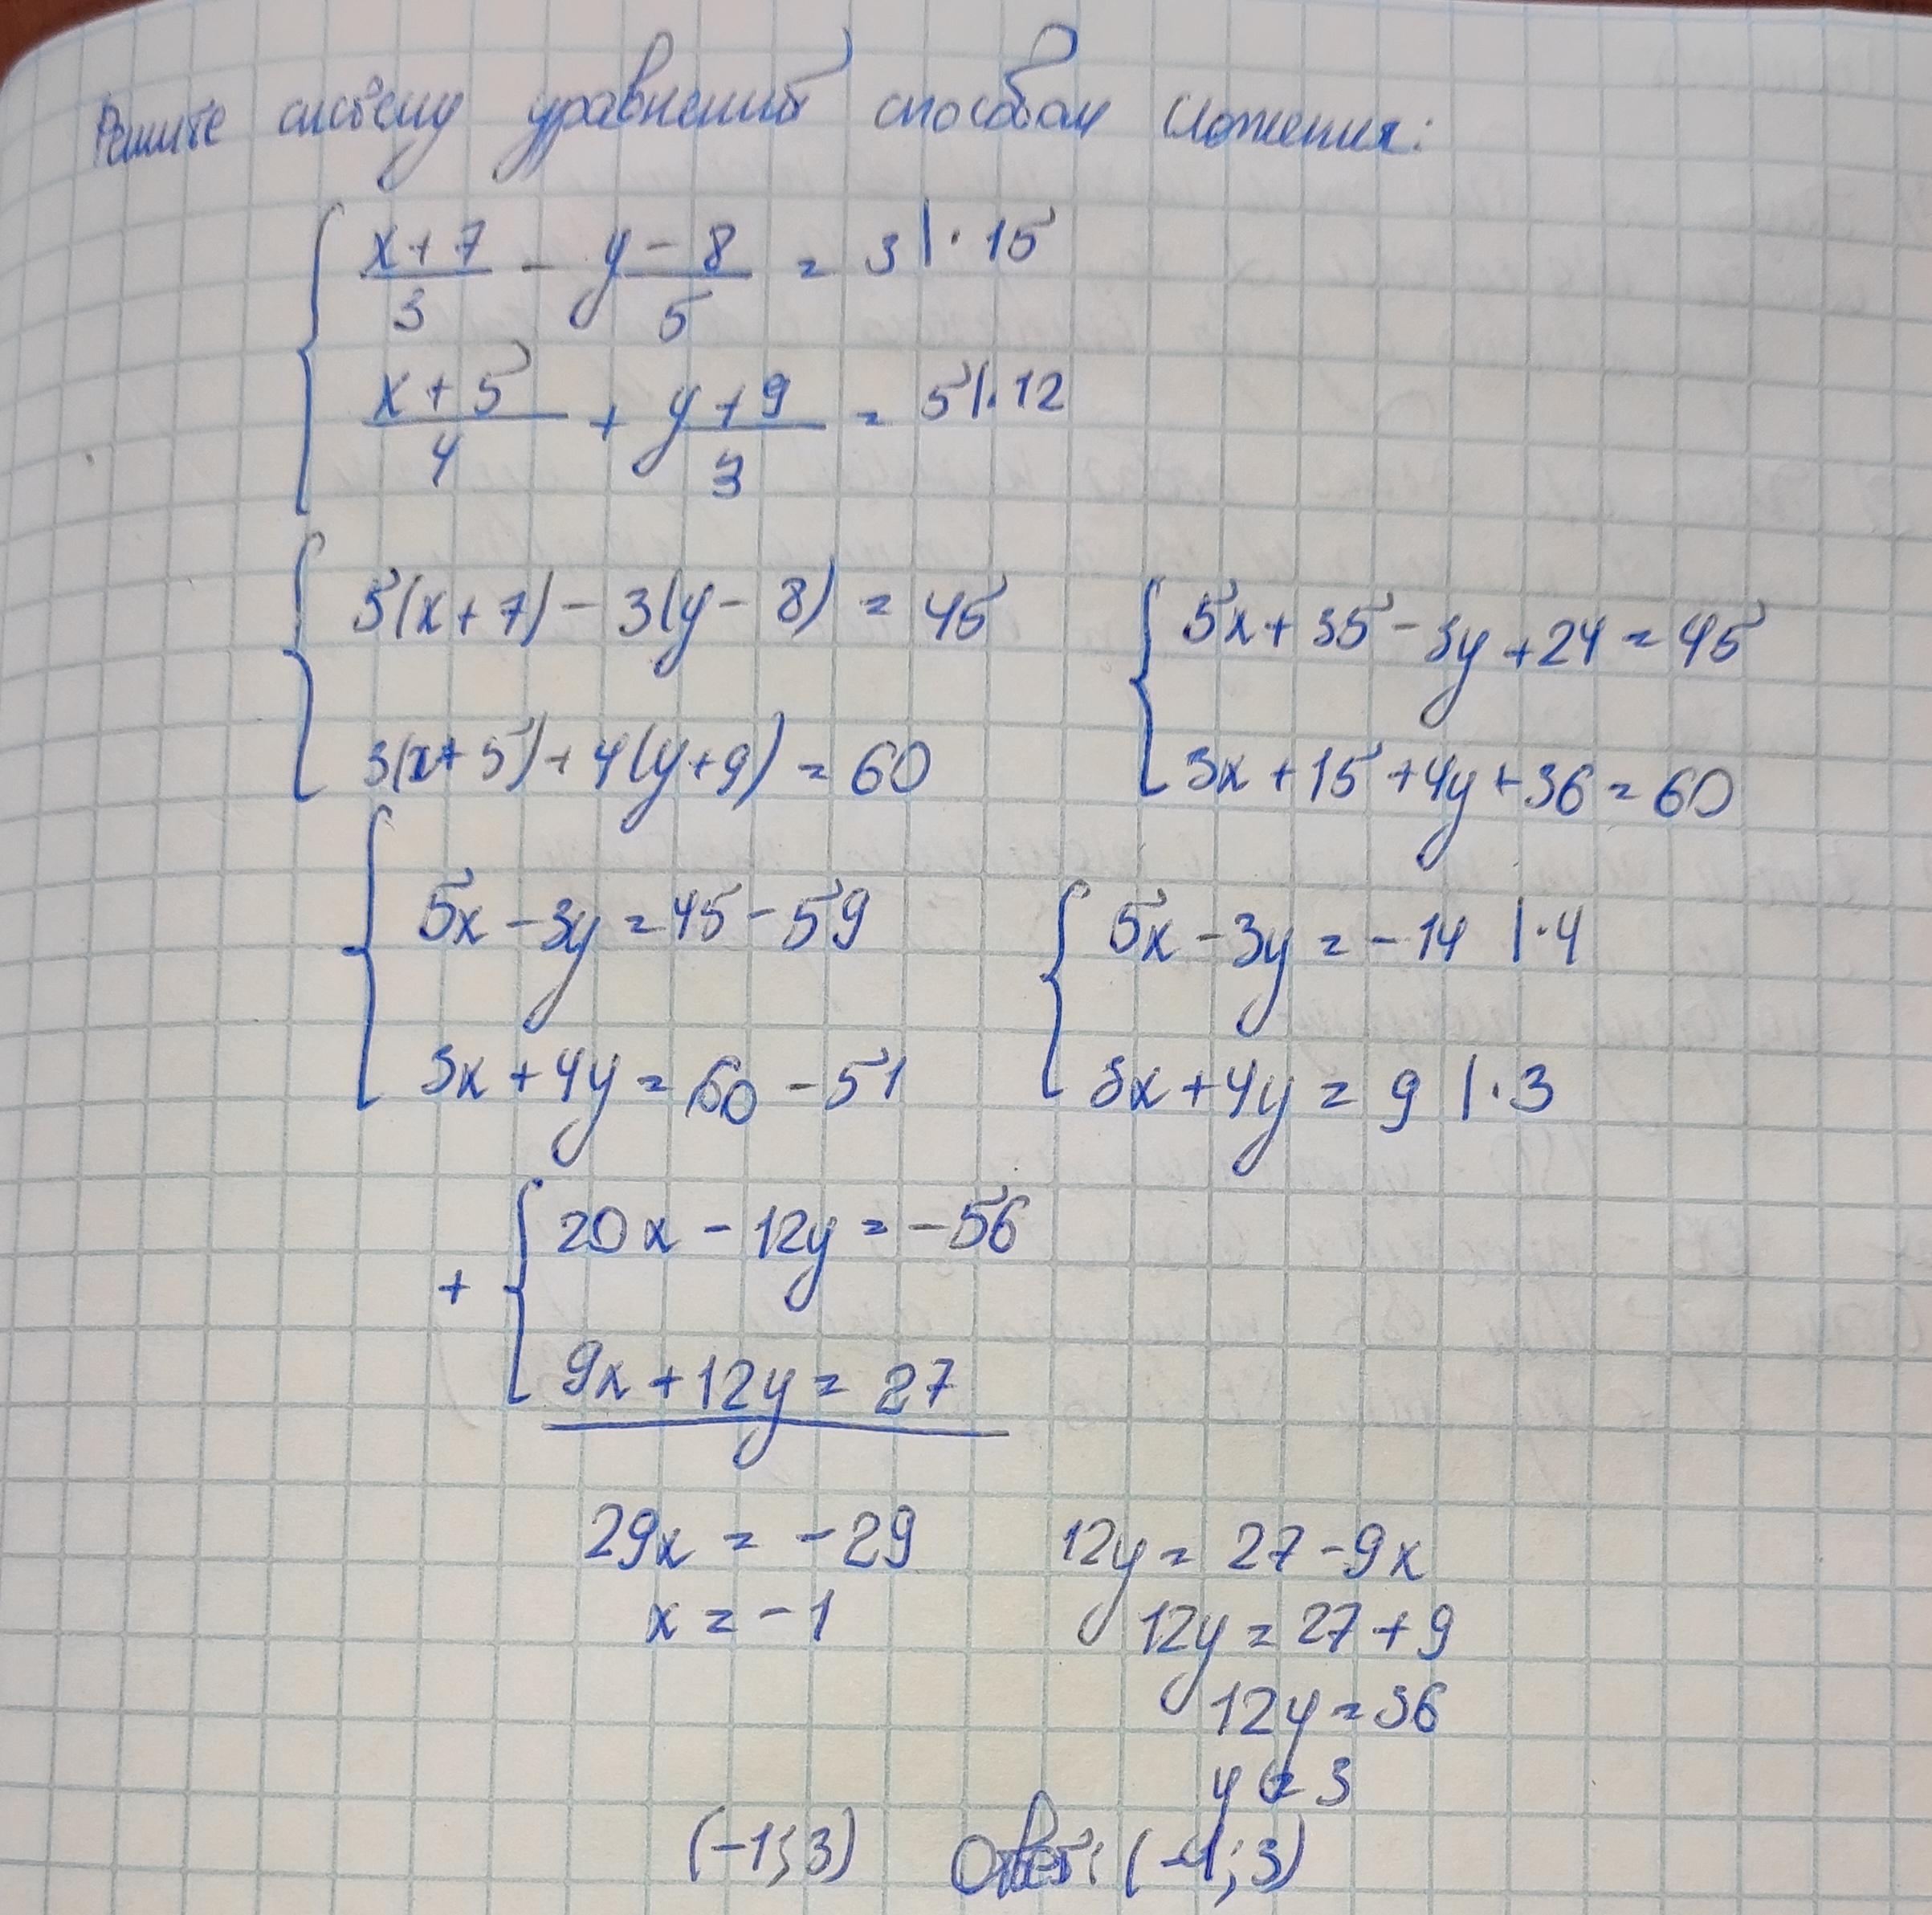 Решите систему уравнений способом сложения:
{ (x+7)/3 - (y-8)/5 = 3 |·15
{ (x+5)/4 + (y+9)/3 = 5 |·12
{ 5(x+7) - 3(y-8) = 45 { 5x+35-3y+24=45
{ 3(x+5)+4(y+9)=60 { 3x+15+4y+36=60
{ 5x-3y=45-59 { 5x-3y=-14 |·4
{ 3x+4y=60-51 { 3x+4y=9 |·3
+ { 20x-12y=-56
{ 9x+12y=27
29x=-29 12y=27-9x
x=-1 12y=27+9
12y=36
y=3
(-1;3) Ответ: (-1;3)